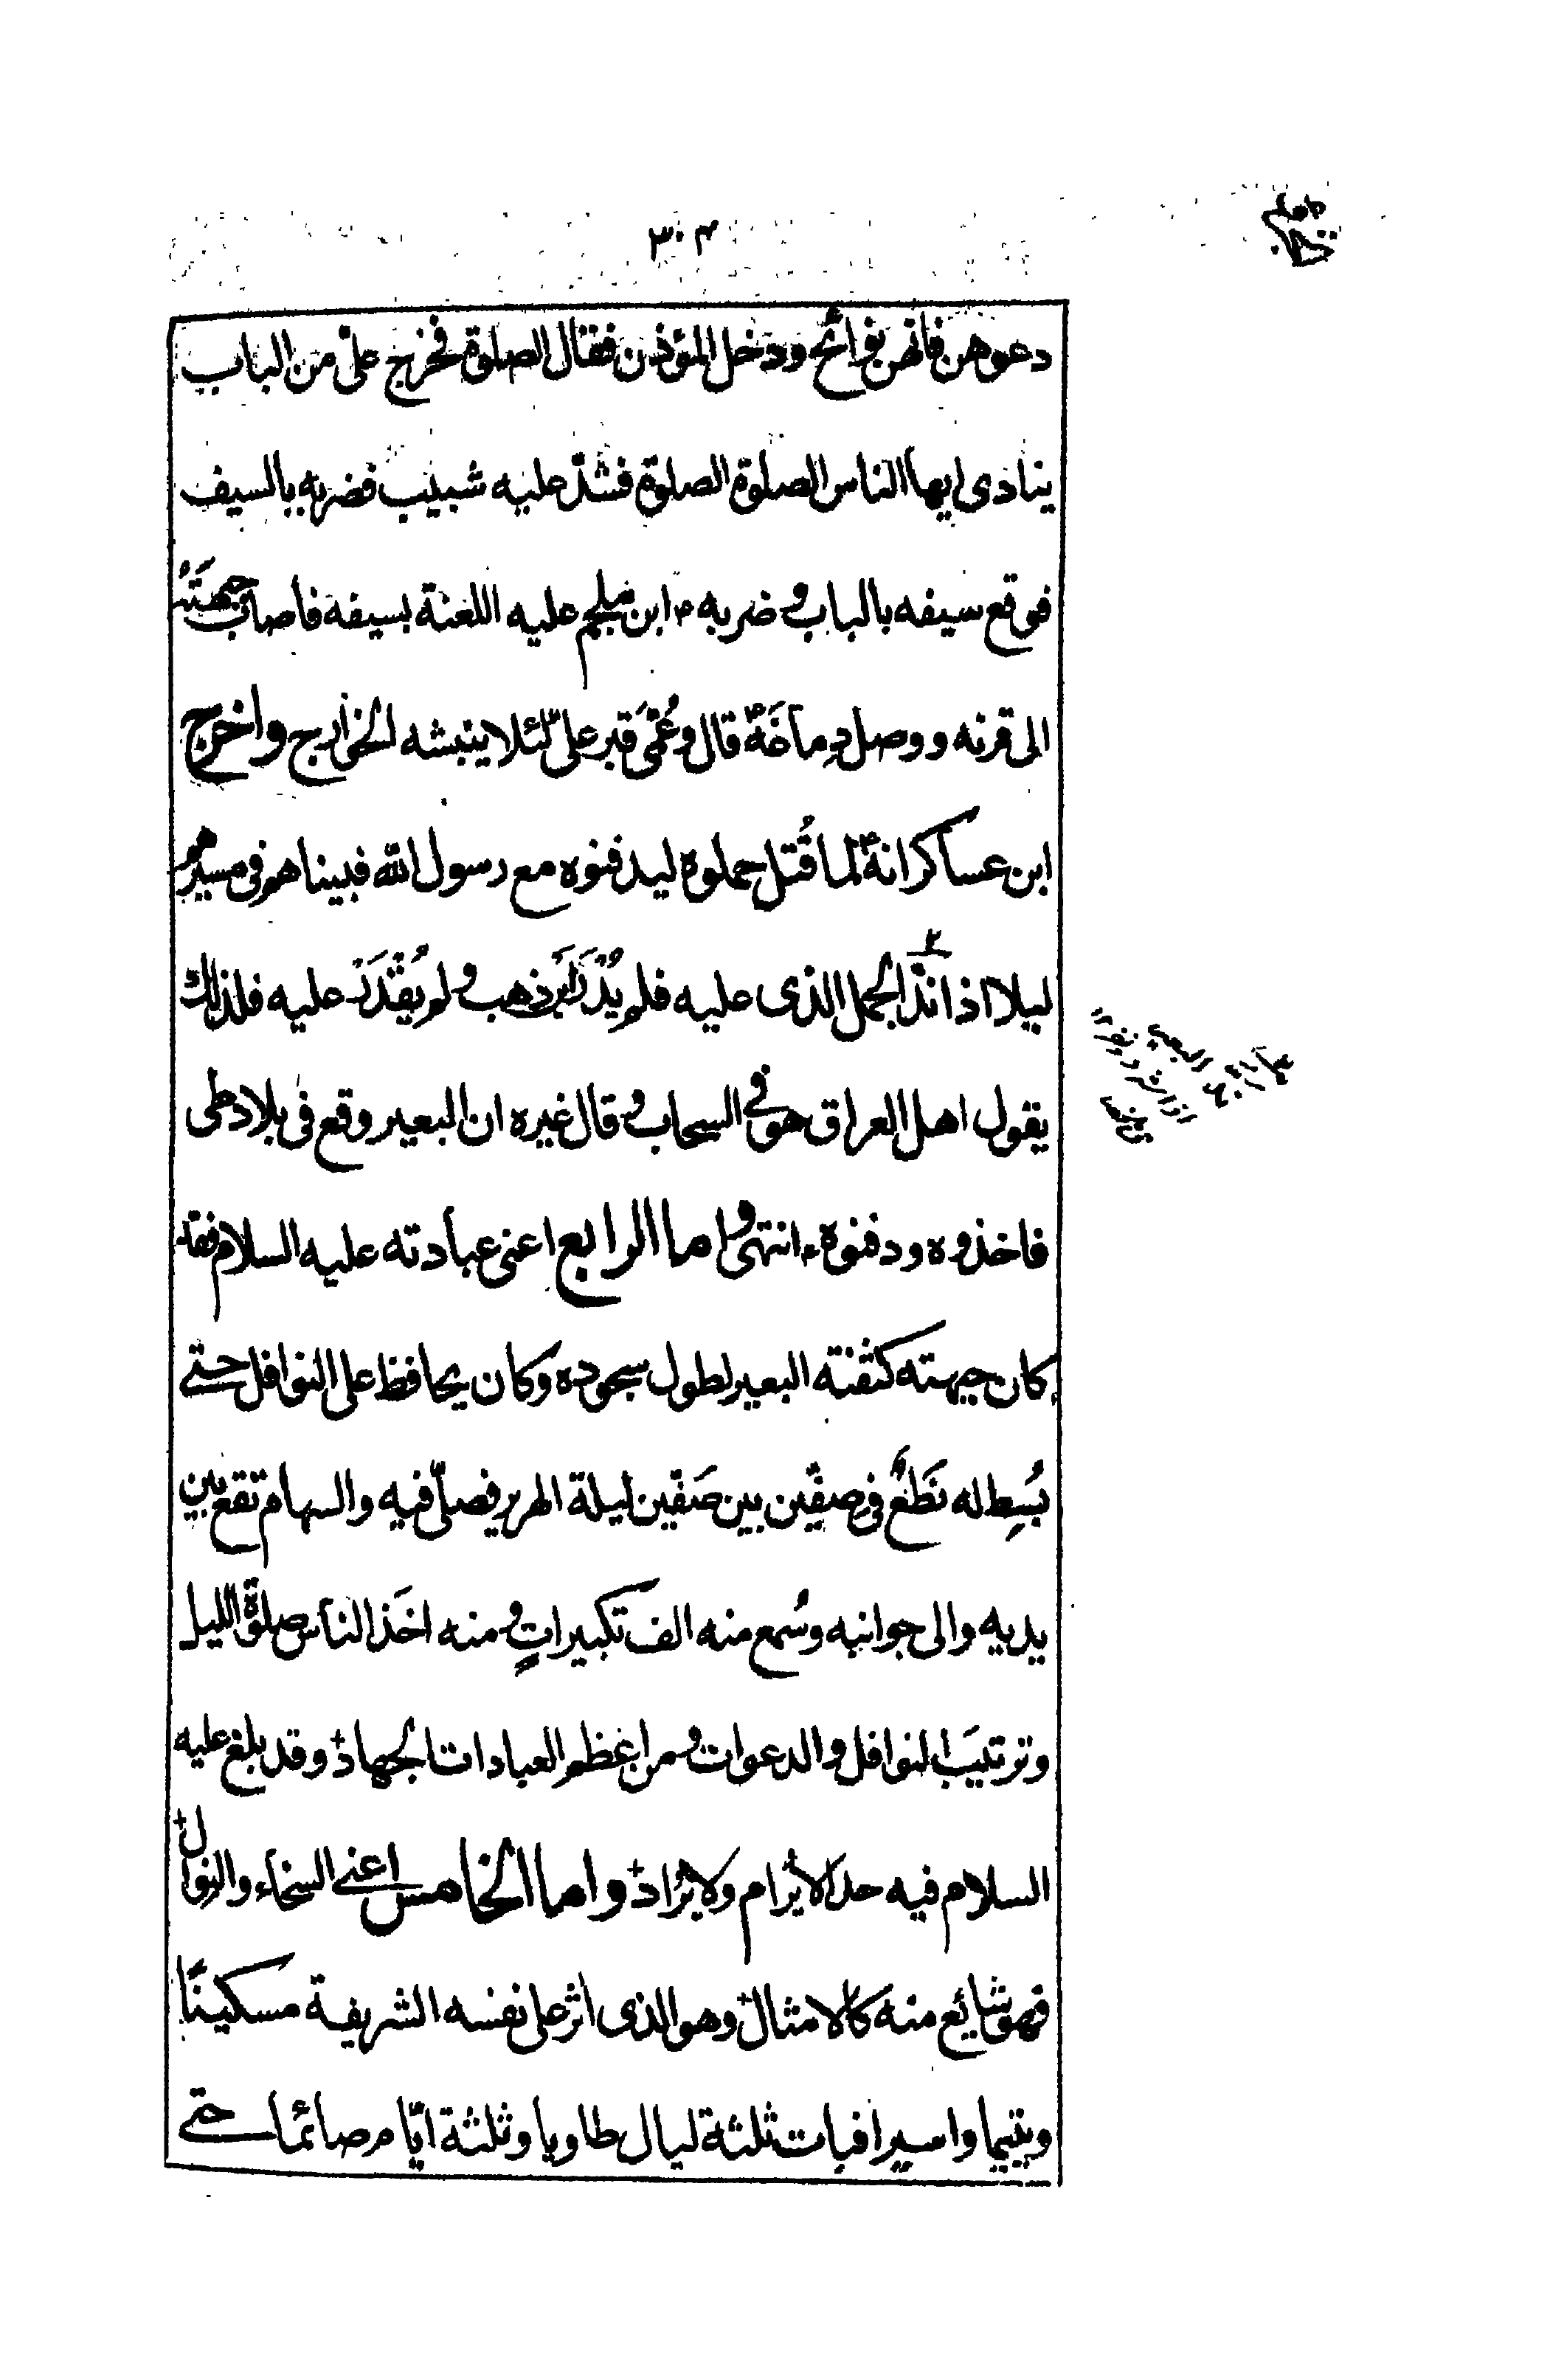 ٣٠٣
دعوهن فانهن نوائح ودخل المؤذن فقال الصلوة فخرج علىّ من الباب
ينادى ايها الناس الصلوة الصلوة فشدّ عليه شبيب فضربه بالسيف
فوقع سيفه بالباب وضربه ابن ملجم عليه اللعنة بسيفه فاصاب جبهتَهُ
الى قرنه ووصل دماغَهُ قال وعُمِّىَ قبر علىّ لئلا ينبشه الخوارج واخرج
ابن عساكر انهٗ لما قُتل حملوه ليدفنوه مع رسول الله فبينا هم فى مسيرهم
ليلا اذ اندّ الجمل الذى عليه فلم يُدْرَ اين ذهب ولم يُقْدَرْ عليه فلذلك
يقول اهل العراق هو فى السحاب وقال غيره ان البعير وقع فى بلاد طى
فاخذوه ودفنوه انتهى واما الرابع اعنى عبادته عليه السلام فقد
كان جبهته كثفنة البعير لطول سجوده وكان يحافظ على النوافل حتى
بُسِط له نَطْعٌ فى صِفّين بين صَفّين ليلة الهرير فصلّى فيه والسهام تقع بين
يديه والى جوانبه وسُمع منه الف تكبيراتٍ ومنه اخَذ الناس صلوة الليل
وترتيبَ النوافل والدعوات ومن اعْظم العبادات الجهاد وقد بلغ عليه
السلام فيه حدّا لا يُرام ولا يُراد واما الخامس اعنى السخاء والنوال
فهو شايع منه كالامثال وهو الذى اثر على نفسه الشريفة مسكينًا
ويتيما واسيرا فبات ثلثة ليال طاويا وثلثة ايّام صائما حتى
البعير